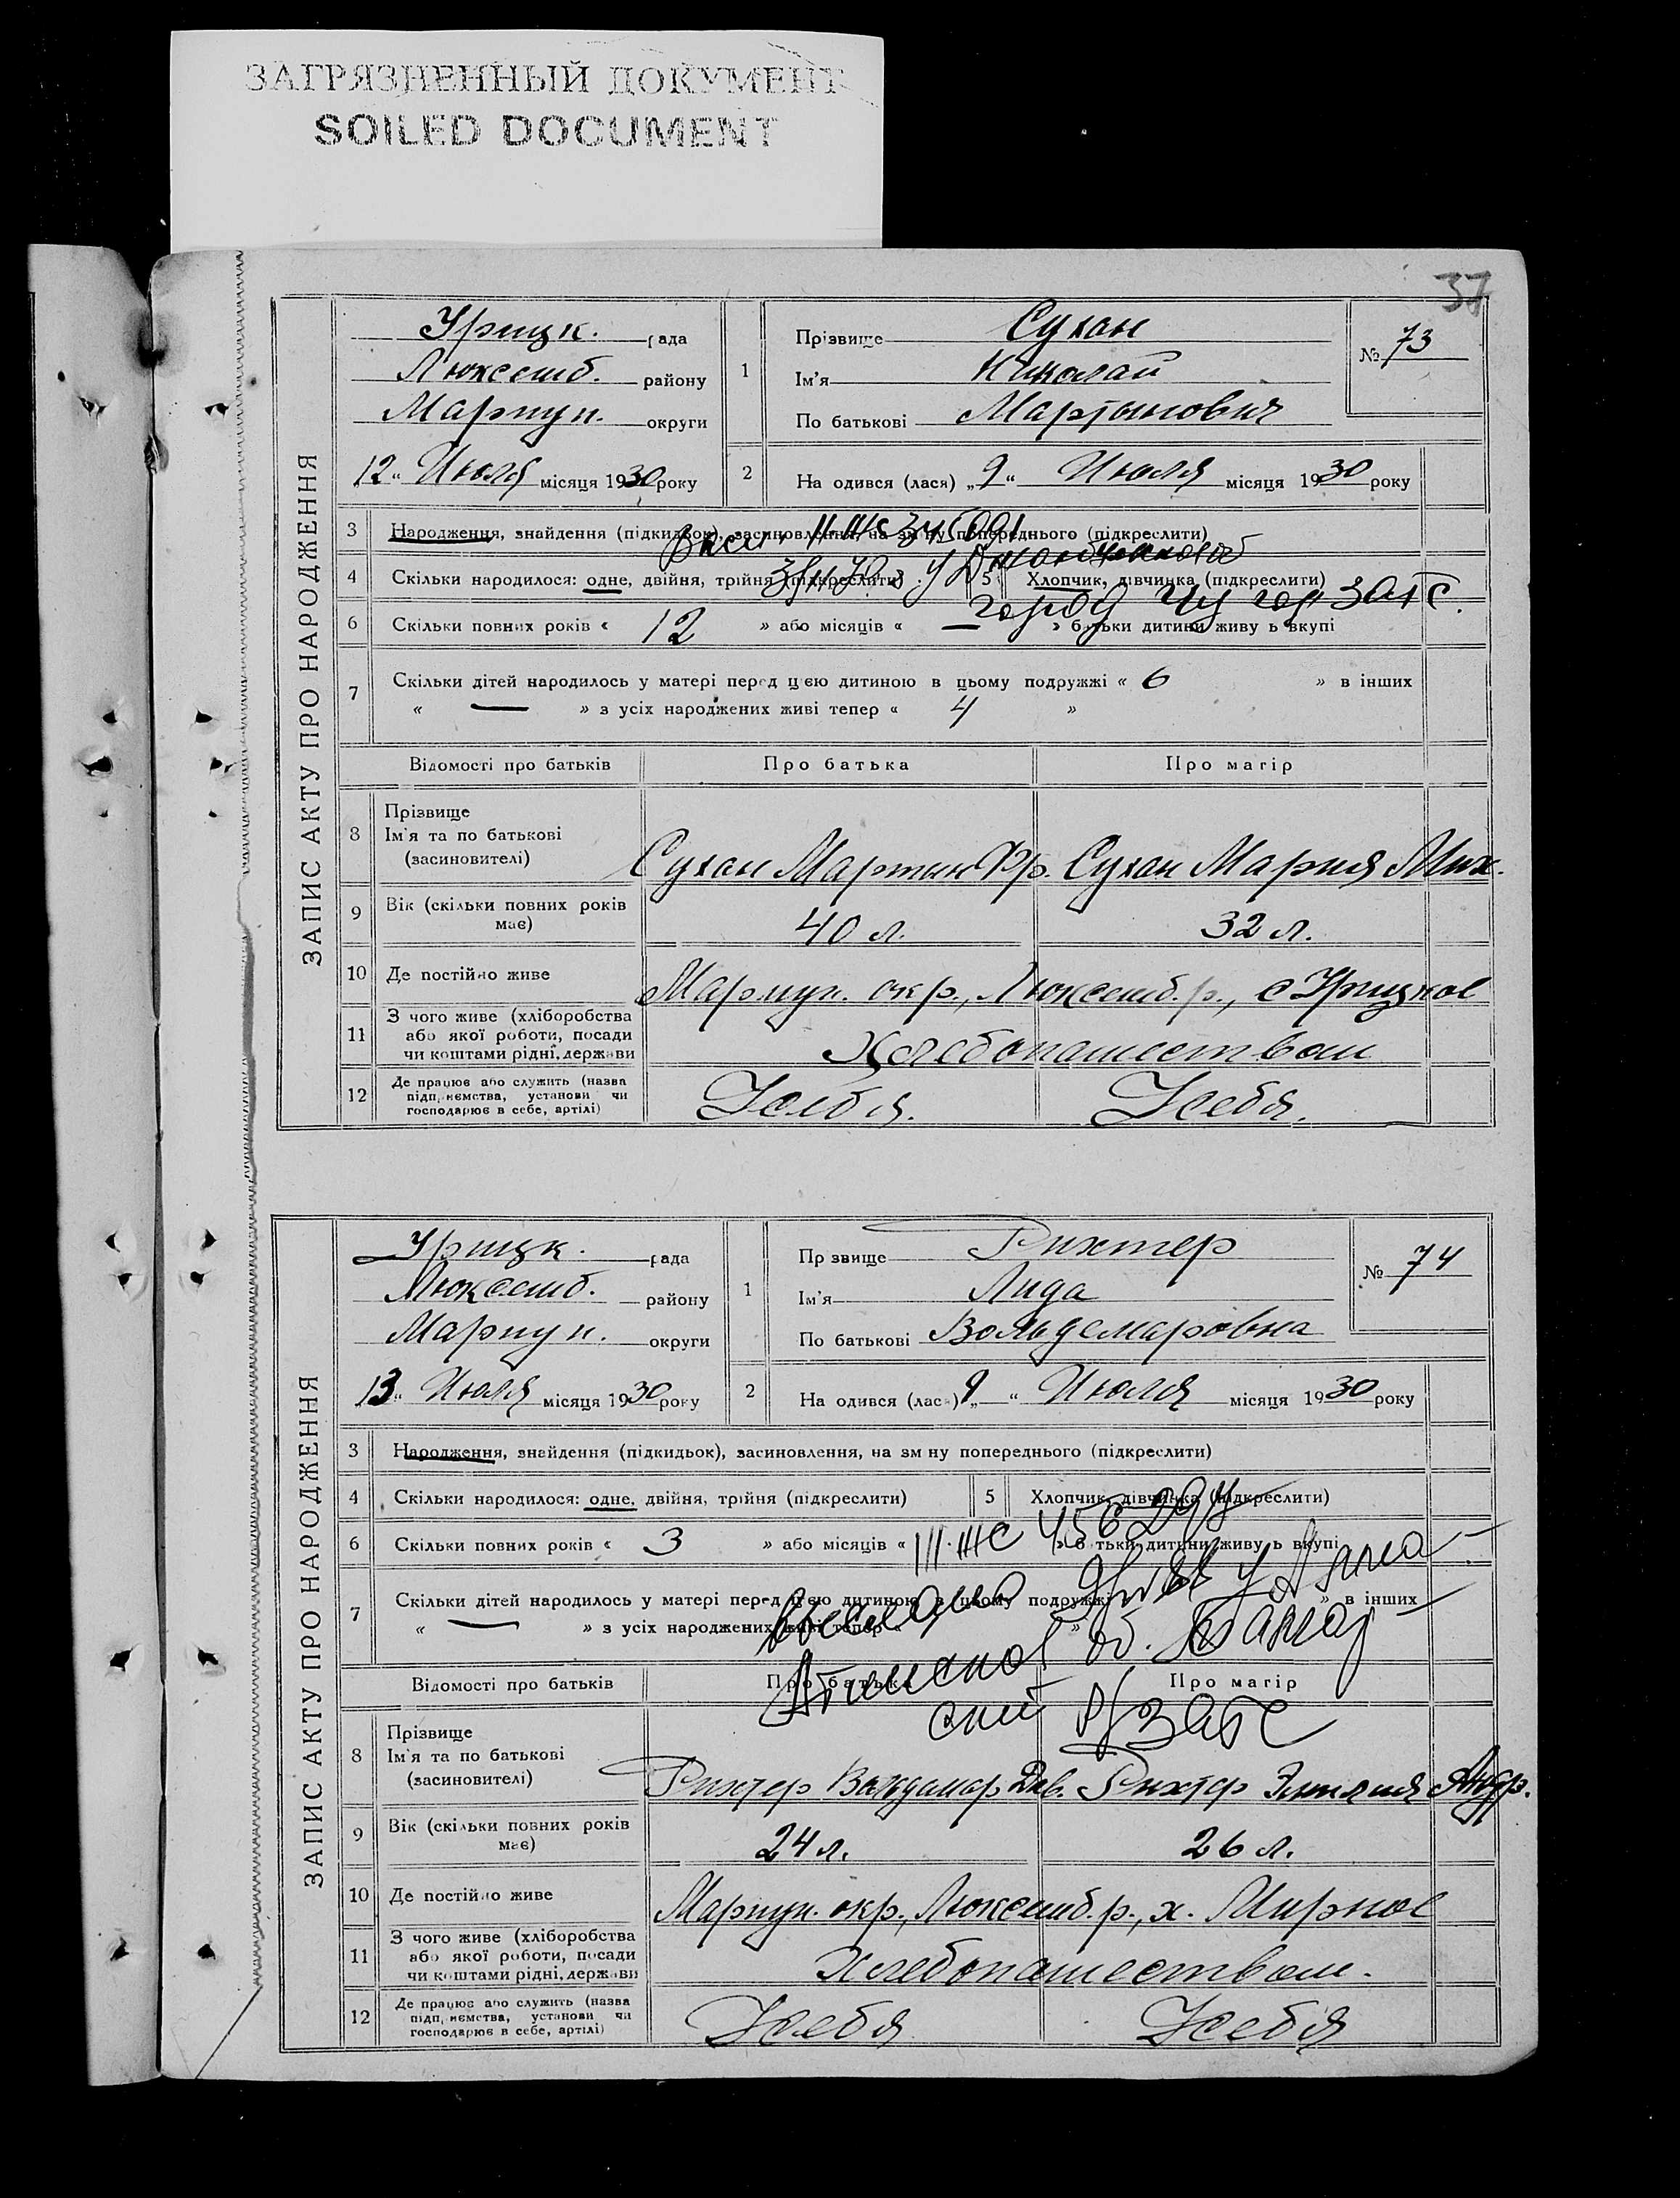 ЗАГРЯЗНЕННЫЙ ДОКУМЕНТ
SOILED DOCUMENT
37
ЗАПИС АКТУ ПРО НАРОДЖЕННЯ
Урицк. рада
Люксемб. району
Мариуп. округи
12 „ Июля місяця 1930 року
1
Прізвище Сухан
Ім'я Николай
По батькові Мартынович
№ 73
2 На одився (лася) „9“ Июля місяця 1930 року
3 Народження, знайдення (підкидьок), засиновлення, на зм ну попереднього (підкреслити)
4 Скільки народилося: одне, двійня, трійня (підкреслити)
5 Хлопчик, дівчинка (підкреслити)
город ЗАГС.
6 Скільки повних років « 12 » або місяців « — » батьки дитини живу ь вкупі
7 Скільки дітей народилось у матері перед цією дитиною в цьому подружжі « 6 » в інших
« — » з усіх народжених живі тепер « 4 »
Відомості про батьків Про батька Про матір
8 Прізвище
Ім'я та по батькові
(засиновителі)
Сухан Мартын Фр. Сухан Мария Мих.
9 Вік (скільки повних років
має)
40 л. 32 л.
10 Де постійно живе Мариуп. окр., Люксемб. р., с Урицкое
11 З чого живе (хліборобства
або якої роботи, посади
чи коштами рідні, держави
Хлебопашеством
12 Де працює або служить (назва
підп, иємства, установи чи
господарює в себе, артілі)
У себя. У себя.
ЗАПИС АКТУ ПРО НАРОДЖЕННЯ
Урицк. рада
Люксемб. району
Мариуп. округи
13 „ Июля місяця 1930 року
1
Пр звище Рихтер
Ім'я Лида
По батькові Вольдемаровна
№ 74
2 На одився (лася) „9“ Июля місяця 1930 року
3 Народження, знайдення (підкидьок), засиновлення, на зм ну попереднього (підкреслити)
4 Скільки народилося: одне, двійня, трійня (підкреслити)
5 Хлопчик, дівчинка (підкреслити)
6 Скільки повних років « 3 » або місяців « » б тьки дитини живу ь вкупі
7 Скільки дітей народилось у матері перед цією дитиною в цьому подружжі » в інших
« — » з усіх народжених живі тепер « »
выслано
ский ЗАГС
Відомості про батьків Про батька Про матір
8 Прізвище
Ім'я та по батькові
(засиновителі)
Рихтер Вольдемар Дав. Рихтер Эмилия Андр.
9 Вік (скільки повних років
має)
24 л. 26 л.
10 Де постійно живе Мариуп. окр., Люксемб. р., х. Мирное
11 З чого живе (хліборобства
або якої роботи, посади
чи коштами рідні, держави
Хлебопашеством.
12 Де працює або служить (назва
підп, иємства, установи чи
господарює в себе, артілі)
У себя У себя